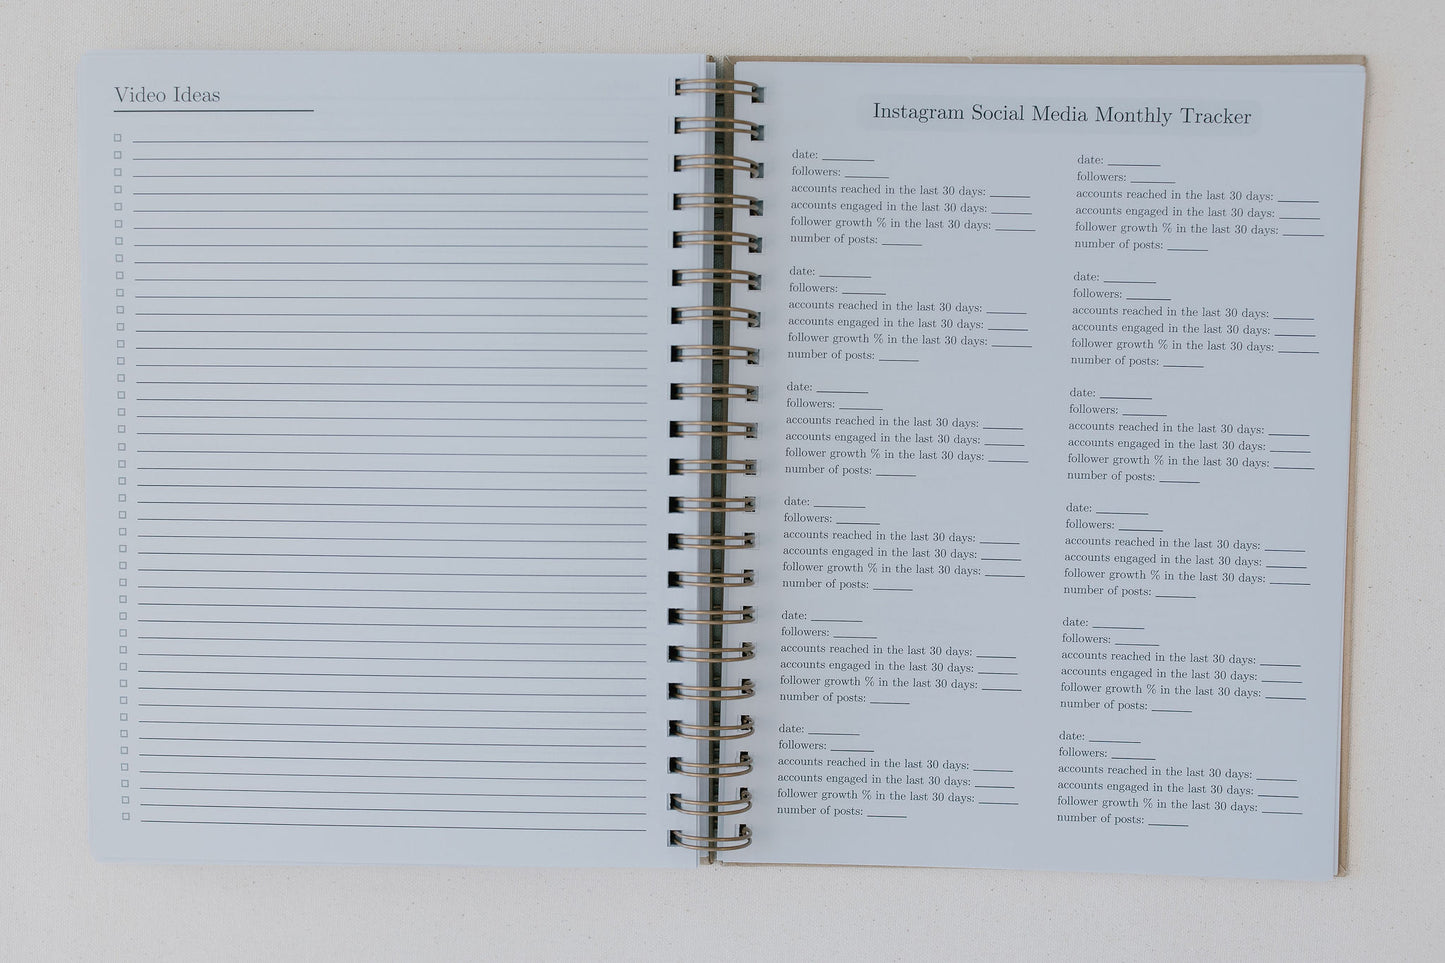 Video Ideas
Instagram Social Media Monthly Tracker
date: ______
followers: ______
accounts reached in the last 30 days: ______
accounts engaged in the last 30 days: ______
follower growth % in the last 30 days: ______
number of posts: ______
date: ______
followers: ______
accounts reached in the last 30 days: ______
accounts engaged in the last 30 days: ______
follower growth % in the last 30 days: ______
number of posts: ______
date: ______
followers: ______
accounts reached in the last 30 days: ______
accounts engaged in the last 30 days: ______
follower growth % in the last 30 days: ______
number of posts: ______
date: ______
followers: ______
accounts reached in the last 30 days: ______
accounts engaged in the last 30 days: ______
follower growth % in the last 30 days: ______
number of posts: ______
date: ______
followers: ______
accounts reached in the last 30 days: ______
accounts engaged in the last 30 days: ______
follower growth % in the last 30 days: ______
number of posts: ______
date: ______
followers: ______
accounts reached in the last 30 days: ______
accounts engaged in the last 30 days: ______
follower growth % in the last 30 days: ______
number of posts: ______
date: ______
followers: ______
accounts reached in the last 30 days: ______
accounts engaged in the last 30 days: ______
follower growth % in the last 30 days: ______
number of posts: ______
date: ______
followers: ______
accounts reached in the last 30 days: ______
accounts engaged in the last 30 days: ______
follower growth % in the last 30 days: ______
number of posts: ______
date: ______
followers: ______
accounts reached in the last 30 days: ______
accounts engaged in the last 30 days: ______
follower growth % in the last 30 days: ______
number of posts: ______
date: ______
followers: ______
accounts reached in the last 30 days: ______
accounts engaged in the last 30 days: ______
follower growth % in the last 30 days: ______
number of posts: ______
date: ______
followers: ______
accounts reached in the last 30 days: ______
accounts engaged in the last 30 days: ______
follower growth % in the last 30 days: ______
number of posts: ______
date: ______
followers: ______
accounts reached in the last 30 days: ______
accounts engaged in the last 30 days: ______
follower growth % in the last 30 days: ______
number of posts: ______